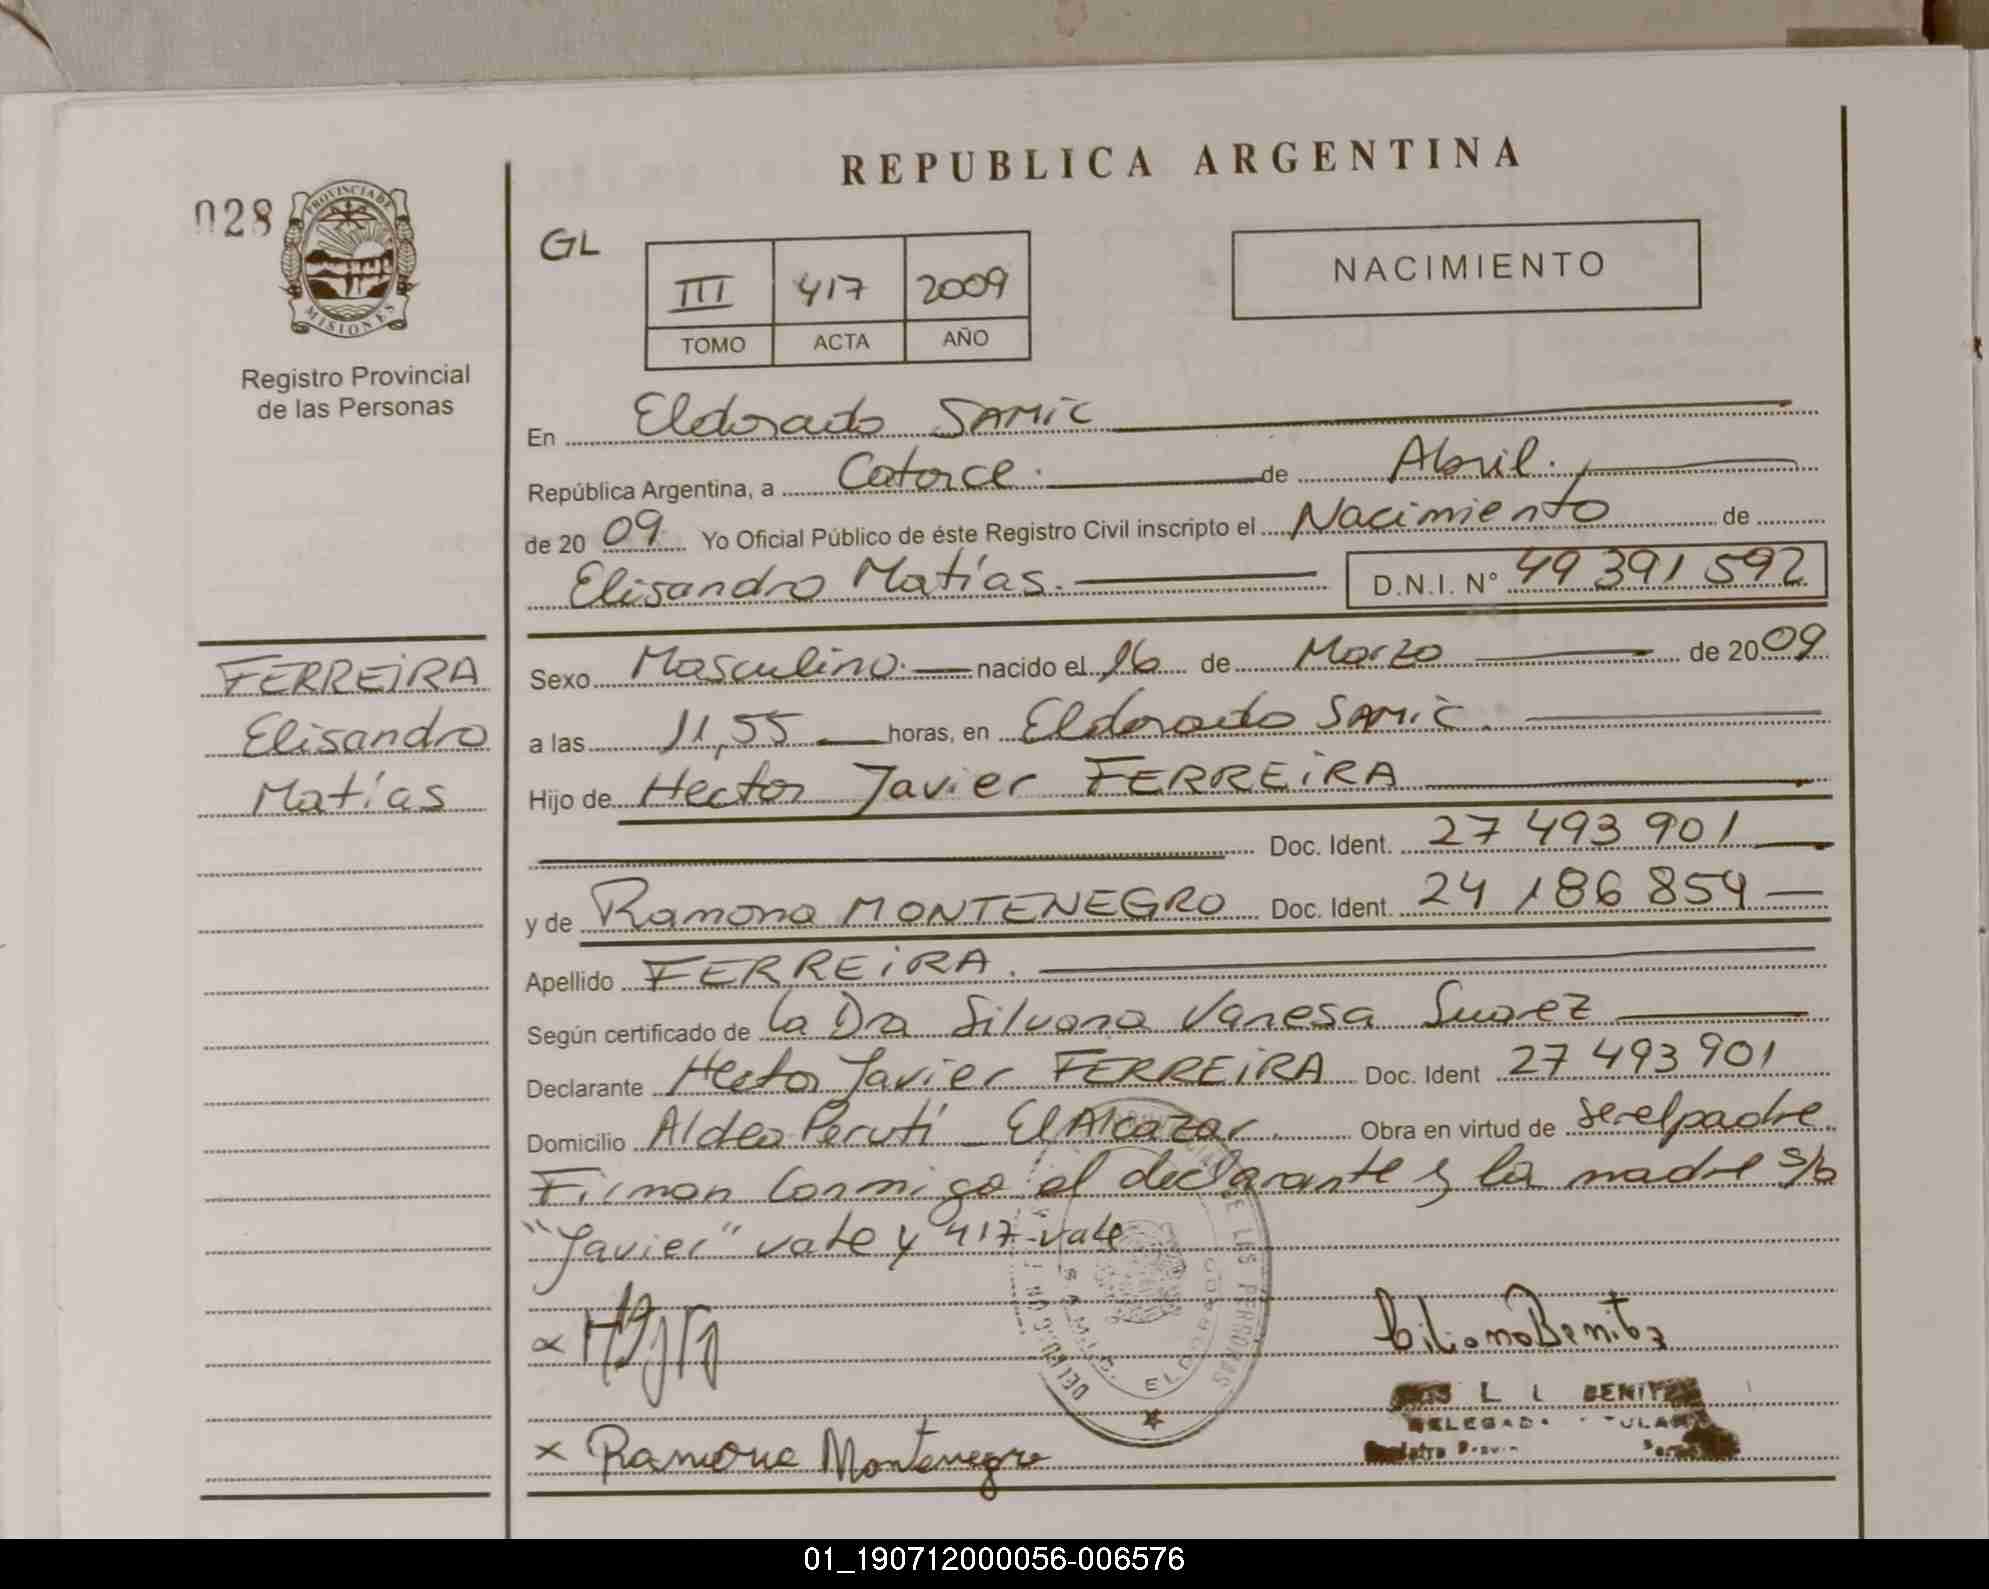 REPUBLICA ARGENTINA
028
PROVINCIA DE
MISIONES
Registro Provincial
de las Personas
GL
III 417 2009
TOMO ACTA AÑO
NACIMIENTO
En Eldorado SAMIC
República Argentina, a Catorce. de Abril.
de 2009 Yo Oficial Público de éste Registro Civil inscripto el Nacimiento de
Elisandro Matías. D.N.I. N° 49 391 592
FERREIRA
Elisandro
Matías
Sexo Masculino. nacido el 16 de Marzo de 2009
a las 11,55 horas, en Eldorado SAMIC.
Hijo de Hector Javier FERREIRA
Doc. Ident. 27 493 901
y de Ramona MONTENEGRO Doc. Ident. 24 186 854
Apellido FERREIRA.
Según certificado de la Dra Silvana Vanesa Suarez
Declarante Hector Javier FERREIRA Doc. Ident 27 493 901
Domicilio Aldea Peruti - El Alcazar. Obra en virtud de ser el padre
Firman conmigo el declarante y la madre s/b
"Javier" vale y 417-vale
DE LAS PERSONAS
S.A.M.I.C.
ELDORADO
Benitez
BENITEZ
x Ramona Montenegro
01_190712000056-006576